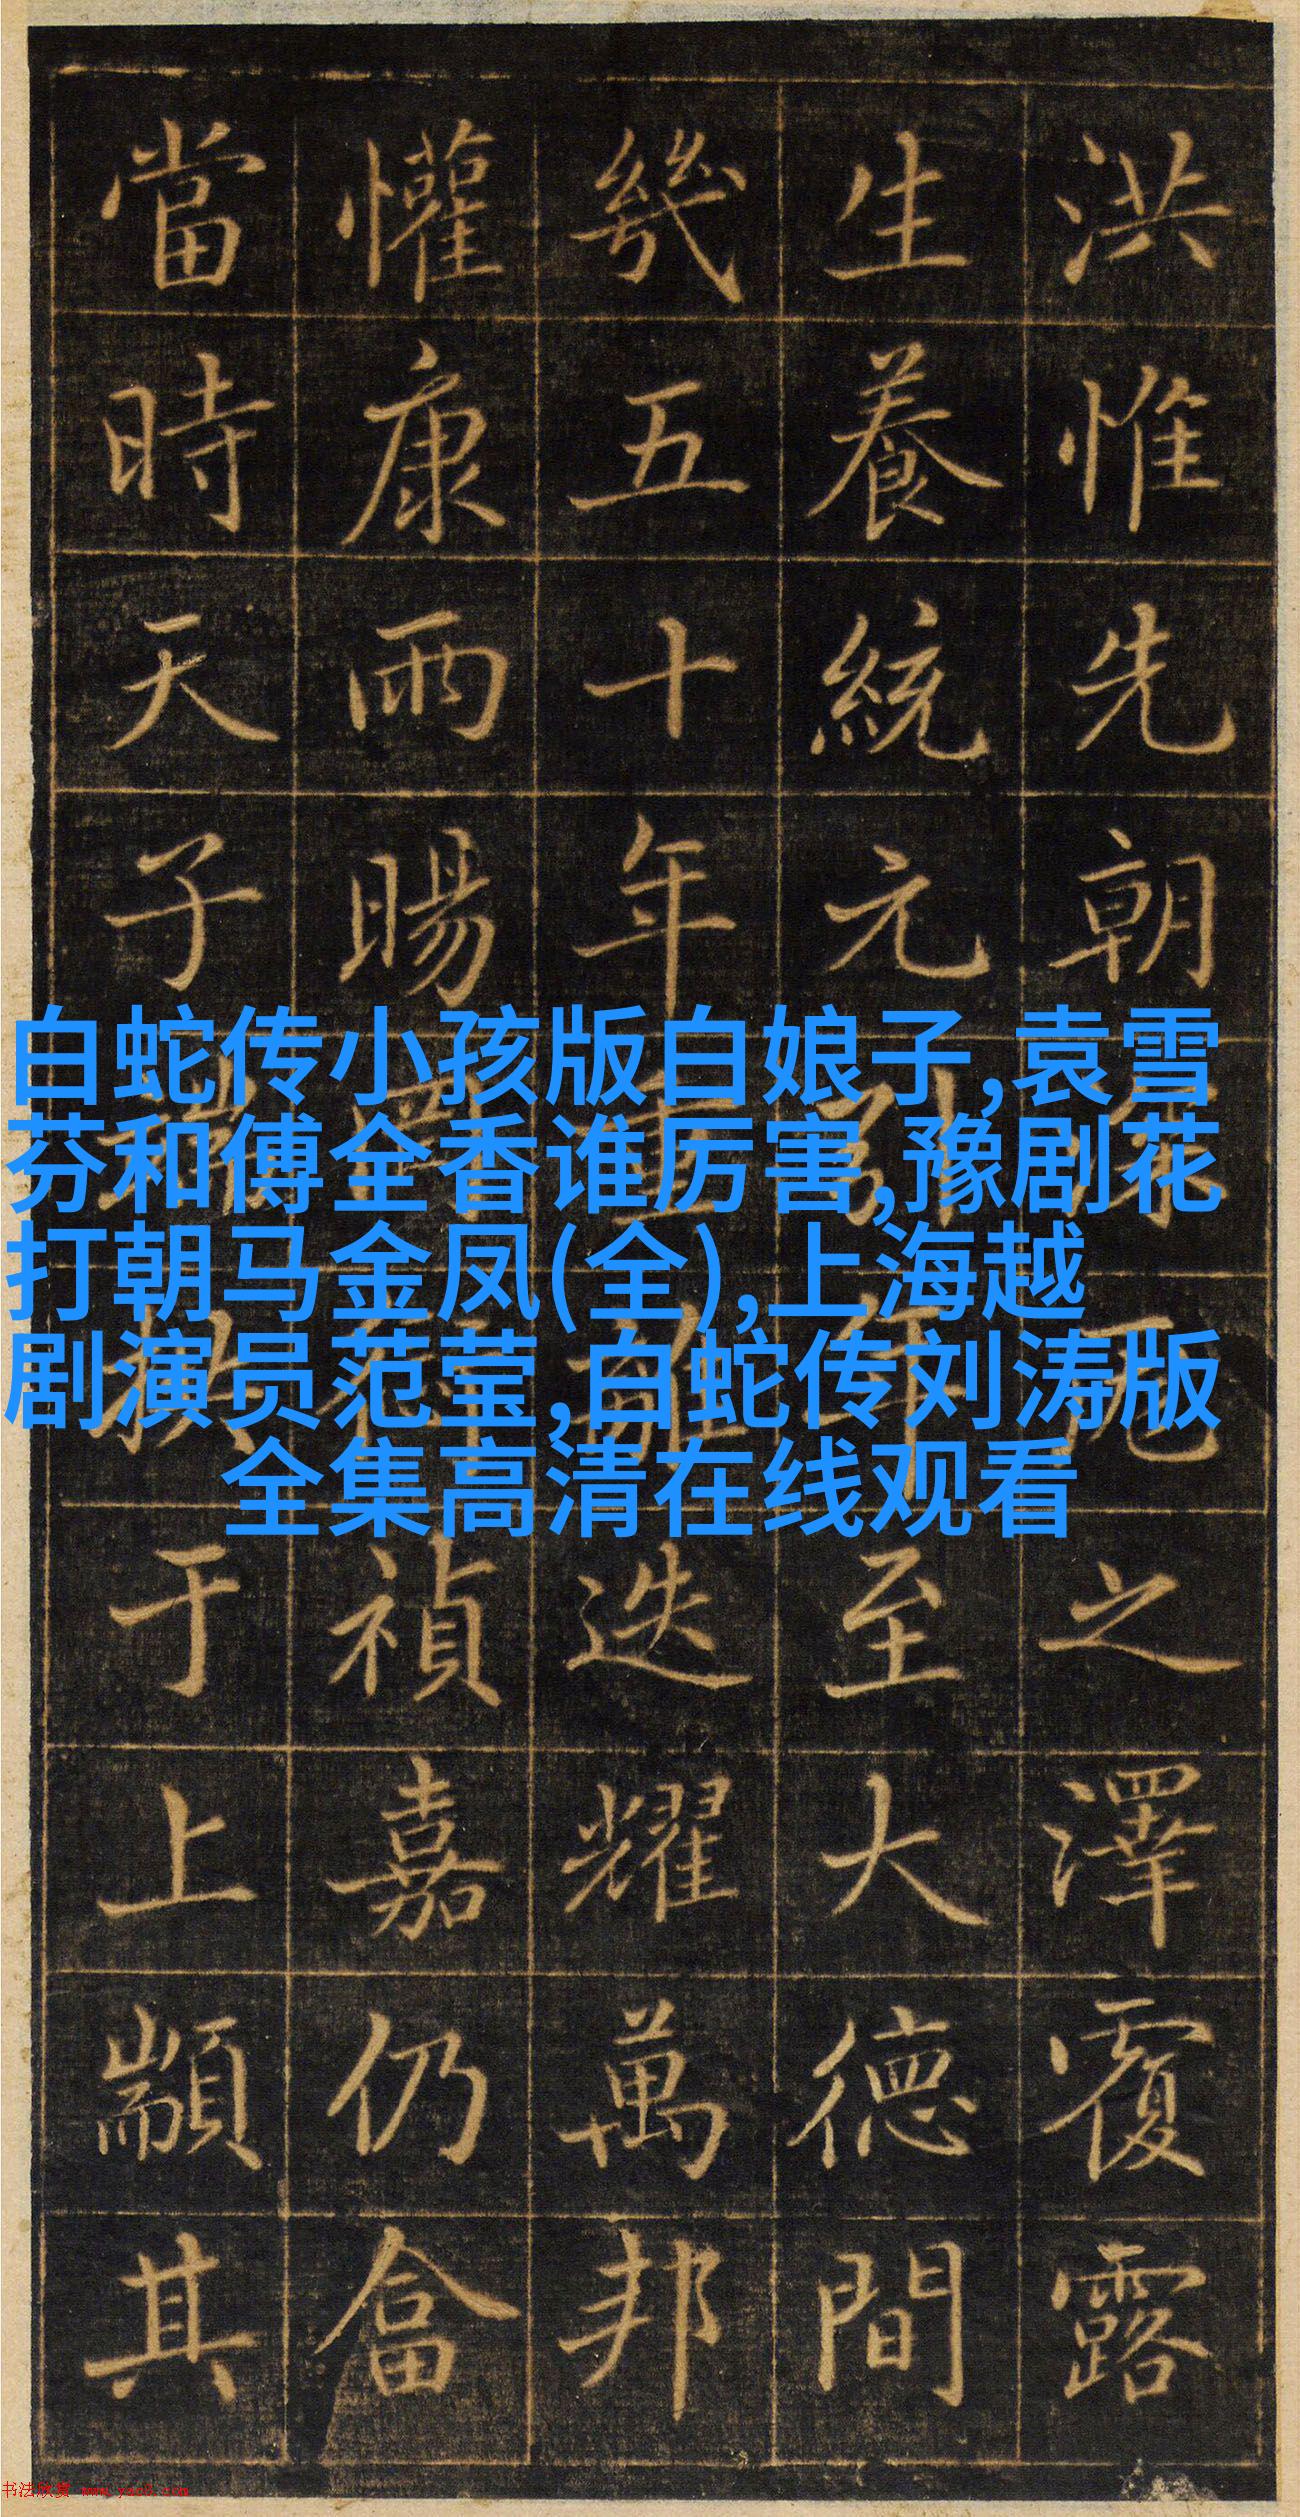 白蛇传小孩版白娘子,袁雪
芬和傅全香谁厉害,豫剧花
打朝马金凤(全),上海越
剧演员范莹,白蛇传刘涛版
全集高清在线观看
洪惟先朝之澤覆露
生養統元至大德間
幾五十年迭耀萬邦
懽康雨暘禎嘉仍畲
當時天子于上顒其
书法欣赏 www.yac8.com